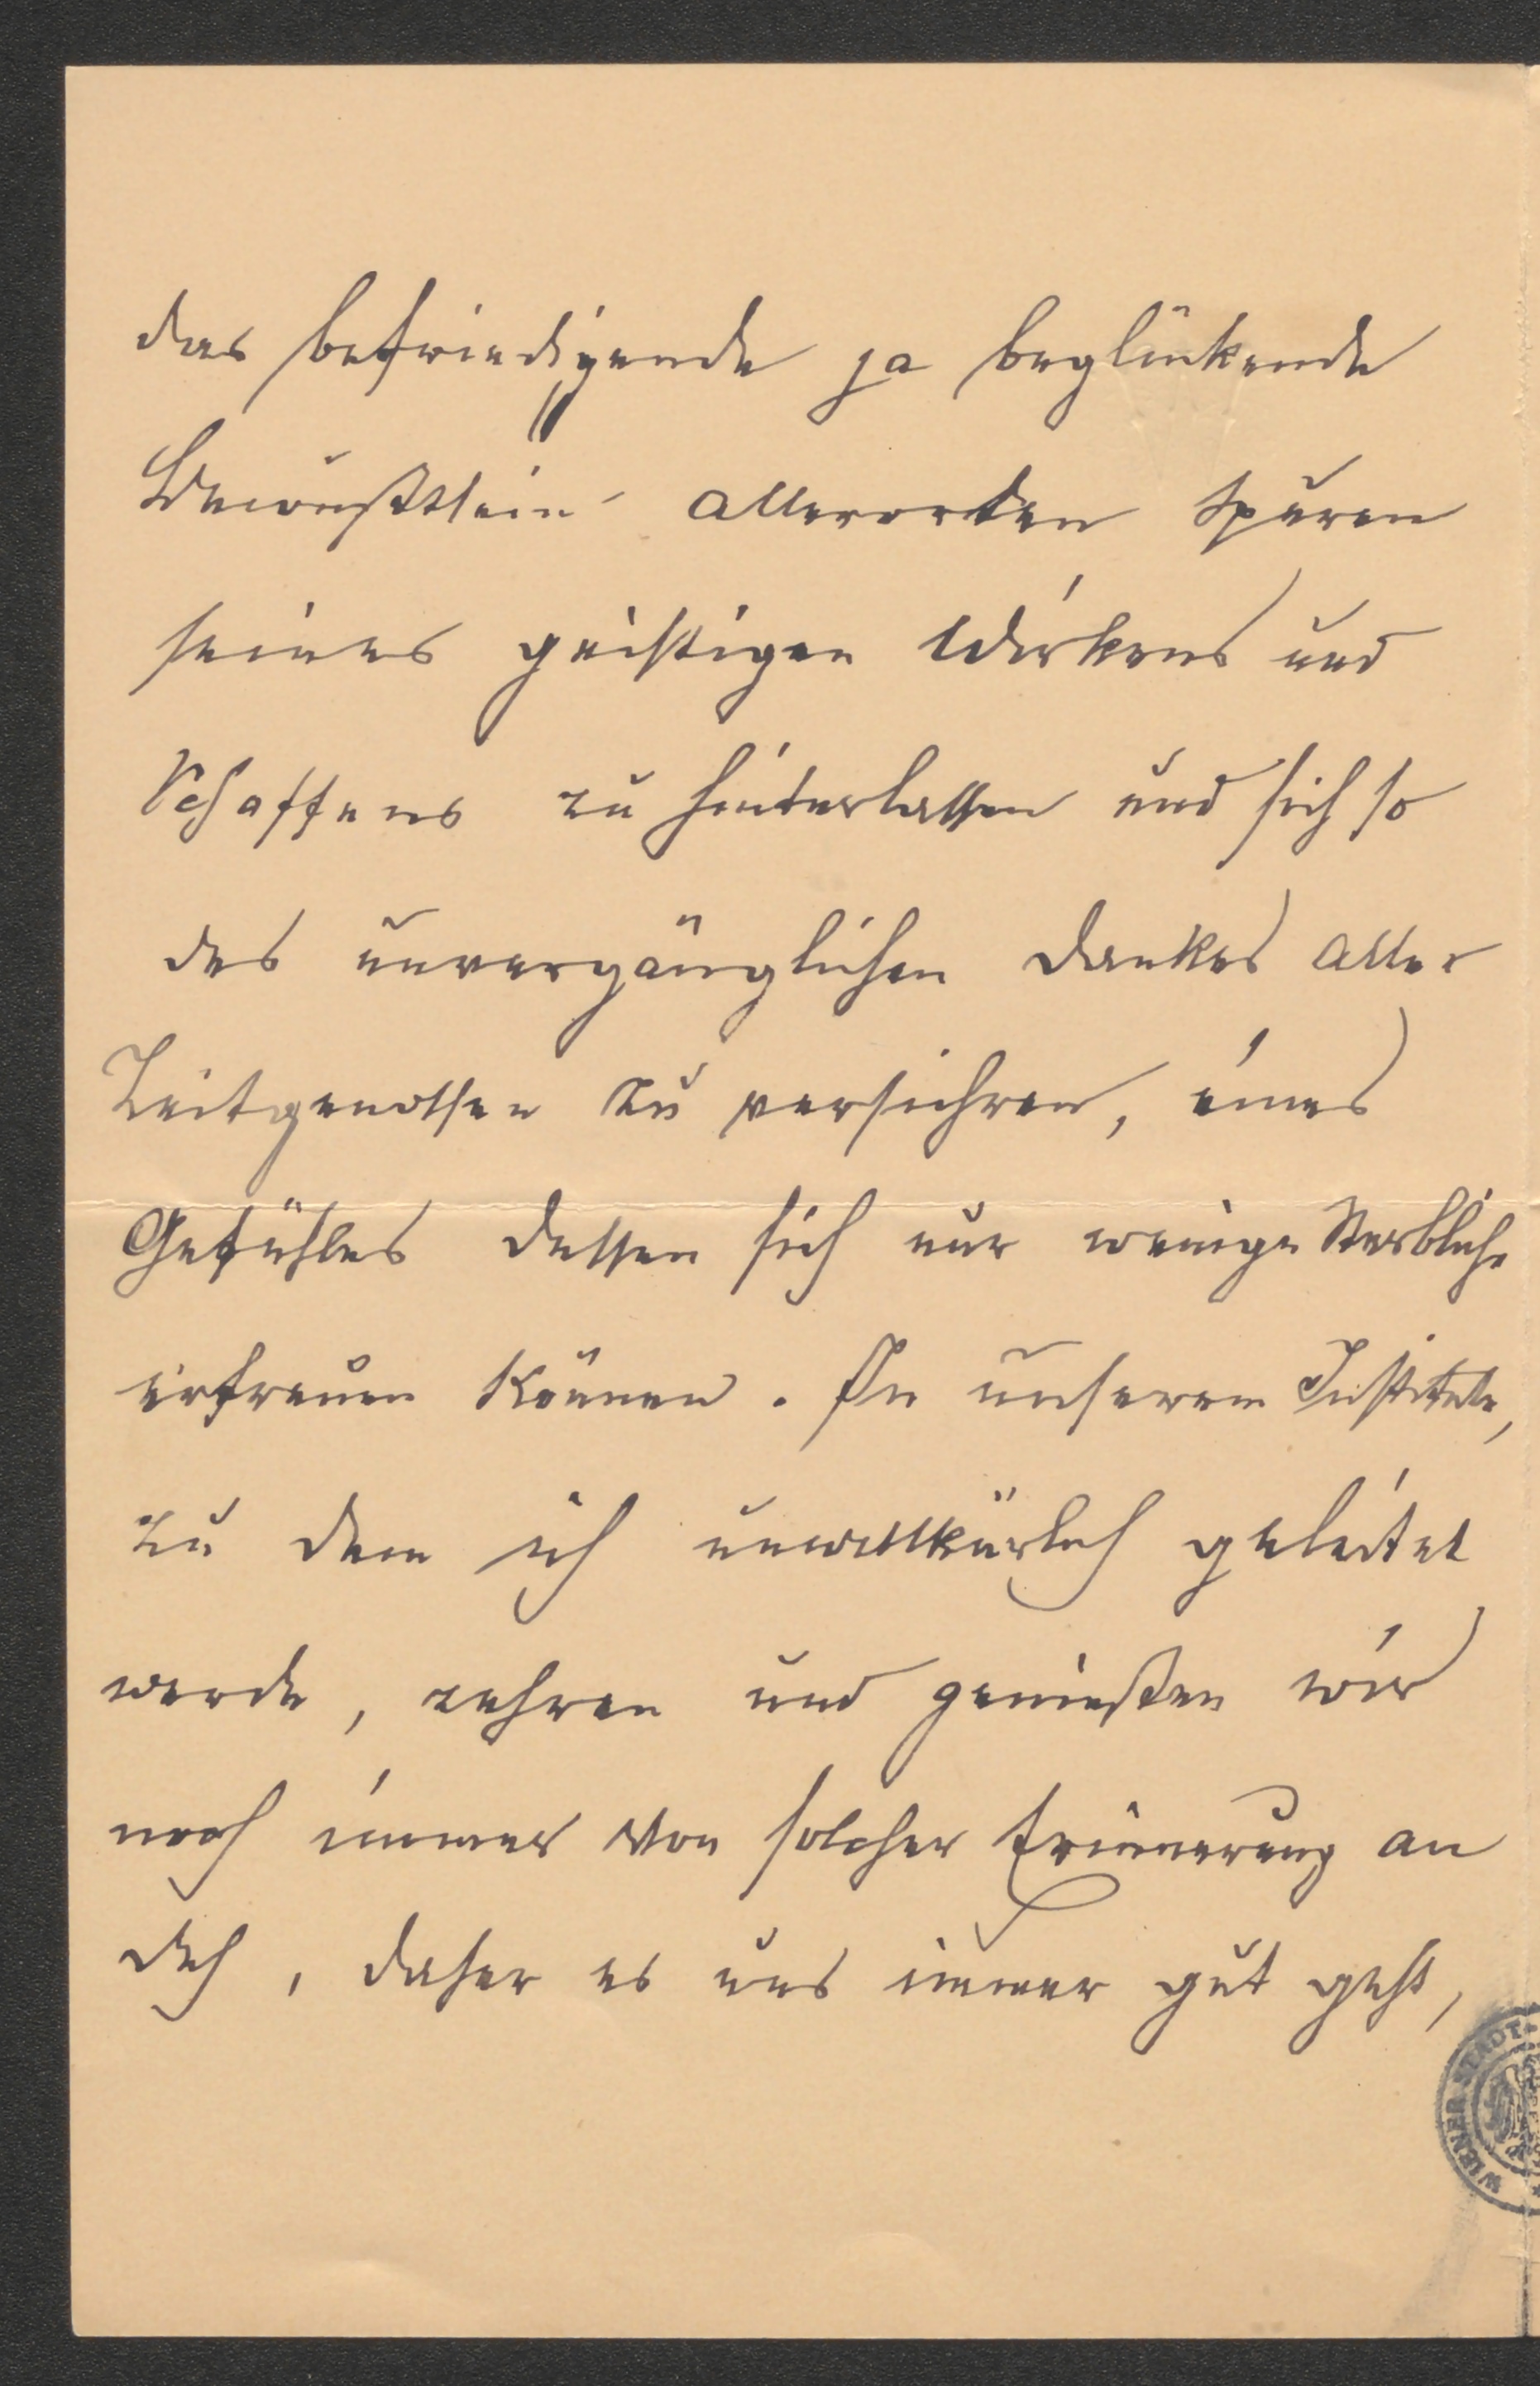 das befriedigende ja beglückende
Bewußtsein allerorten Spuren
seines geistigen Wirkens und
Schaffens zu hinterlassen und sich so
des unvergänglichen Dankes aller
Zeitgenossen zu versichren, eines
Gefühles dessen sich nur wenige Sterbliche
erfreuen können. In unserem Institute,
zu dem ich unwillkürlich geleitet
werde, zehren und genießen wir
noch immer von solcher Erinnerung an
dich, daher es uns immer gut geht,
WIENER STADT